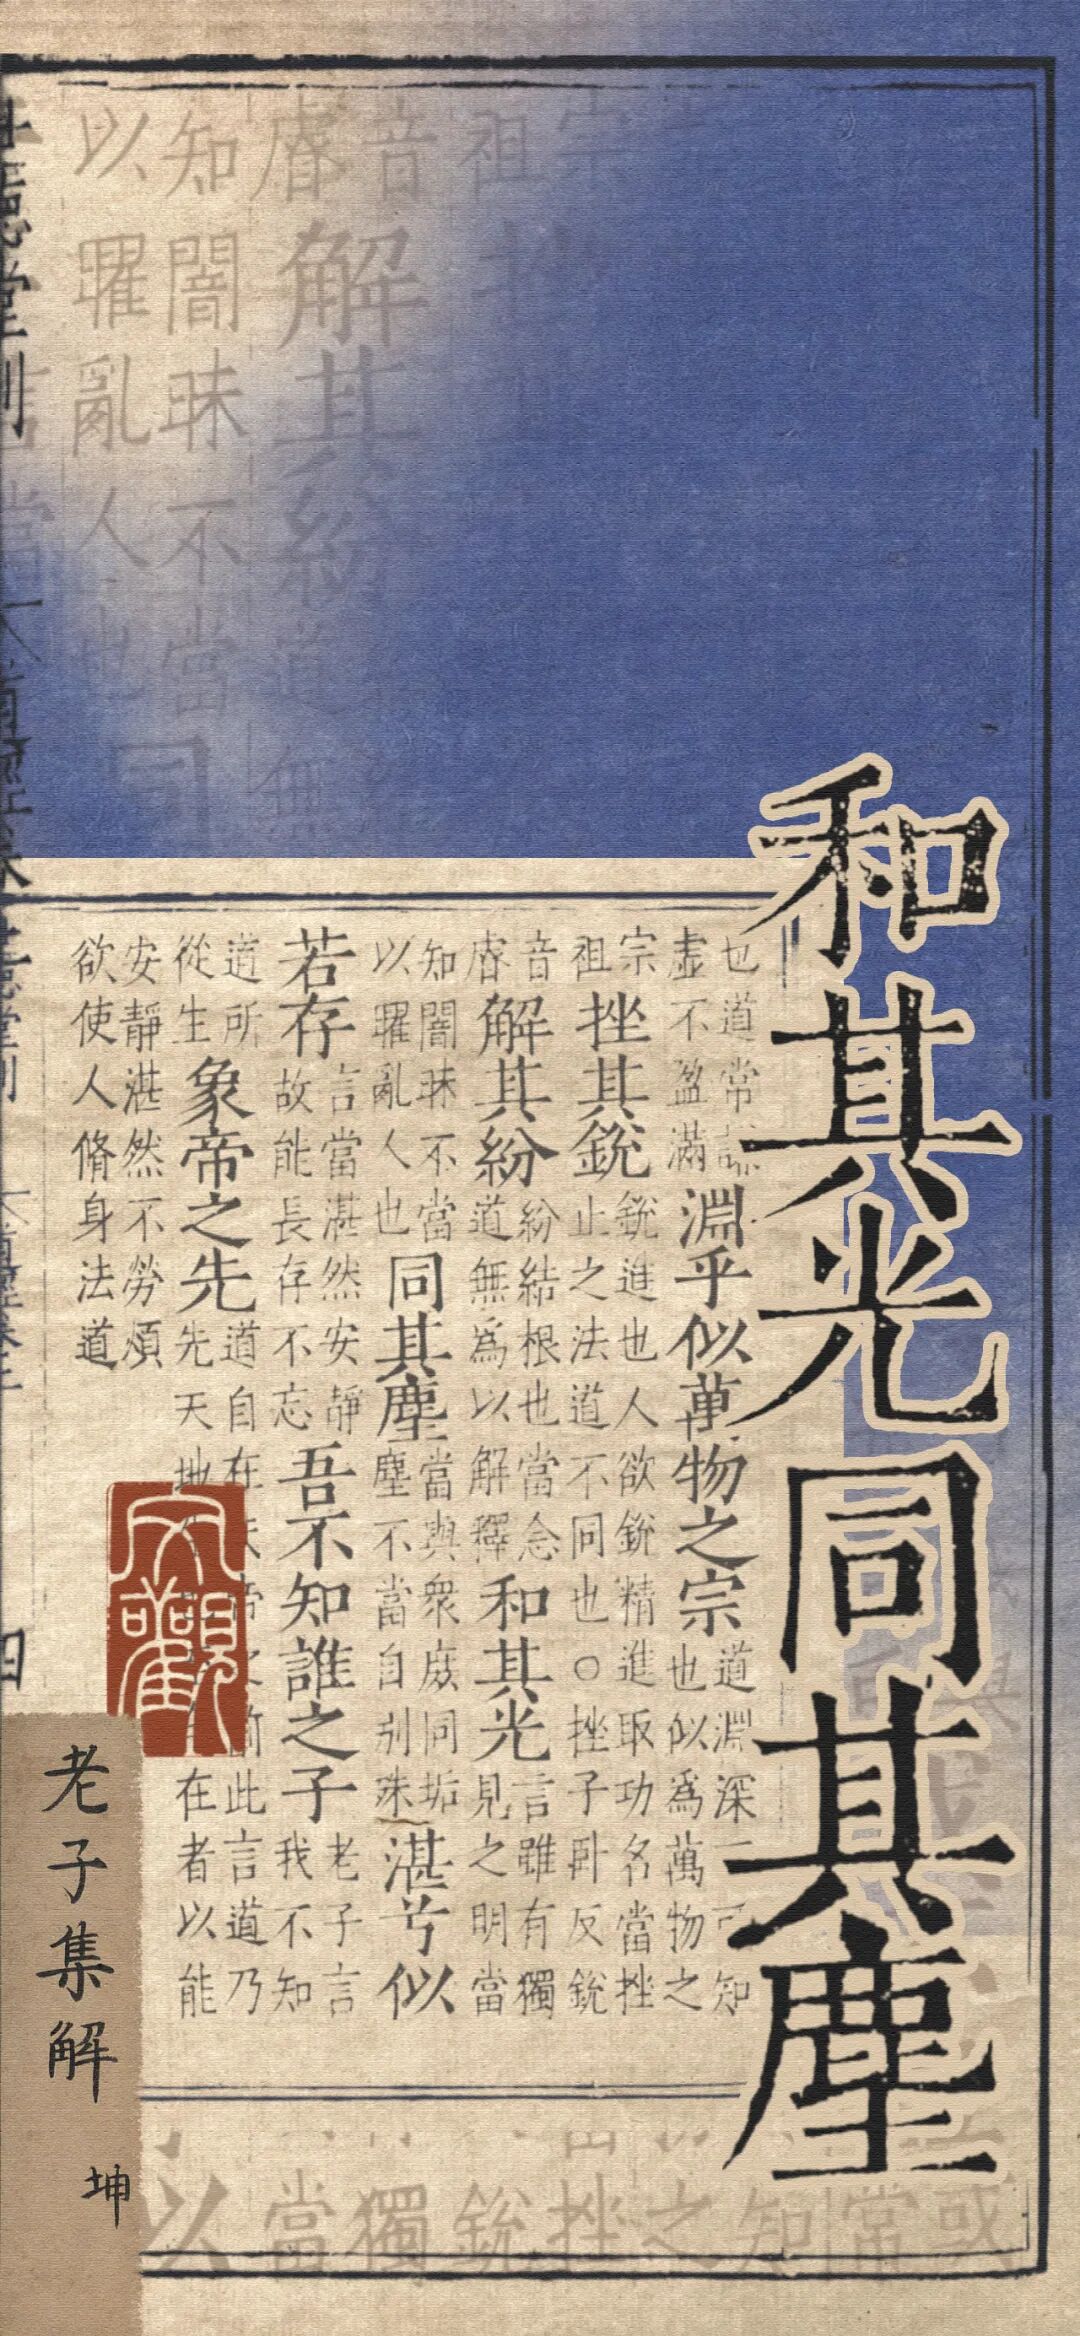 和其光同其塵
也道常
虛不盈滿
淵乎似萬物之宗
道淵深不可知
也似爲萬物之
宗
祖
挫其銳
銳進也人欲銳精進取功名當挫
止之法道不同也○挫子卧反銳
音
解其紛
紛結根也當念
道無爲以解釋
和其光
言雖有獨
見之明當
知闇昧不當
以曜亂人也
同其塵
當與衆庶同垢
塵不當自別殊
湛兮似
若存
言當湛然安靜
故能長存不忘
吾不知誰之子
老子言
我不知
道所
從生
象帝之先
道自在
前此言道乃
先天地
在者以能
安靜湛然不勞煩
欲使人脩身法道
老子集解
坤
祖
音
解其紛
知闇昧不當
以曜亂人也
以當獨銳挫之知常或